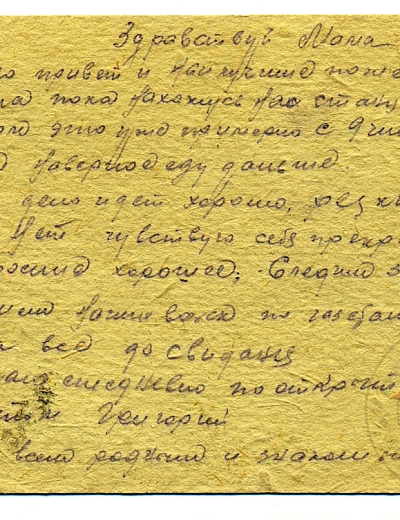 Здравствуй Мама
привет и наилучшие поже
пока нахожусь на стан
это уже примерно с 9 чи
наверное еду дальше.
дело идет хорошо, рез
нет чувствую себя прекр
хорошее. Следим з
наших войск по газетам
все до свидания
ежедневно по открыт
Григорий
всем родным и знаком